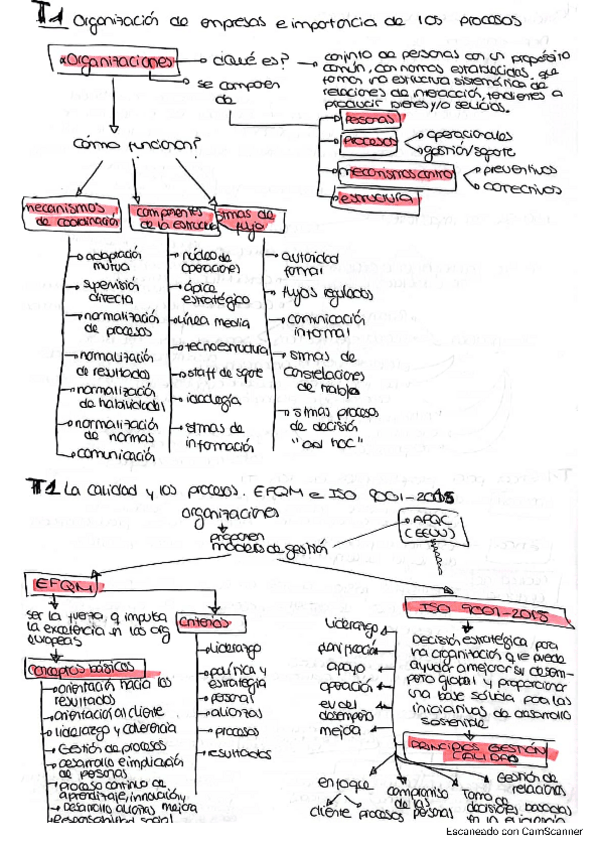 T1 Organización de empresas e importancia de los procesos.
Organizaciones
¿Qué es?
conjunto de personas con un propósito
común, con normas establecidas, que
forman una estructura sistemática de
relaciones de interacción, tendientes a
producir bienes y/o servicios.
se componen
de
Personas
Procesos
operacionales
gestión/soporte
mecanismos control
preventivos
correctivos
estructura
cómo funcionan?
mecanismos
de coordinación
adaptación
mutua
supervisión
directa
normalización
de procesos
normalización
de resultados
normalización
de habilidades
normalización
de normas
comunicación
componentes
de la estructura
núcleo de
operaciones
ápice
estratégico
línea media
tecnoestructura
staff de spte
ideología
stmas de
información
stmas de
flujo
autoridad
formal
flujos regulados
comunicación
informal
stmas de
constelaciones
de trabajo
stmas procesos
de decisión
"ad hoc"
T1 La calidad y los procesos. EFQM e ISO 9001-2015
organizaciones
proponen
modelos de gestión
APQC
(EEUU)
EFQM
ser la fuerza q impulsa
la excelencia en las org
europeas
conceptos básicos
orientación hacia los
resultados
orientación al cliente
liderazgo y coherencia
Gestión de procesos
desarrollo e implicación
de personas
proceso continuo de
aprendizaje, innovación y
mejora
Desarrollo alianzas
Responsabilidad social
Criterios
liderazgo
política y
estrategia
personal
alianzas
procesos
resultados
ISO 9001-2015
Decisión estratégica para
una organización que puede
ayudar a mejorar su desem-
peño global y proporcionar
una base sólida para las
iniciativas de desarrollo
sostenible
liderazgo
planificación
apoyo
operación
ev del
desempeño
mejora
PRINCIPIOS GESTIÓN
CALIDAD
enfoque
cliente
procesos
compromiso
de las
personas
Toma de
decisiones basadas
en la evidencia
Gestión de
relaciones
Escaneado con CamScanner